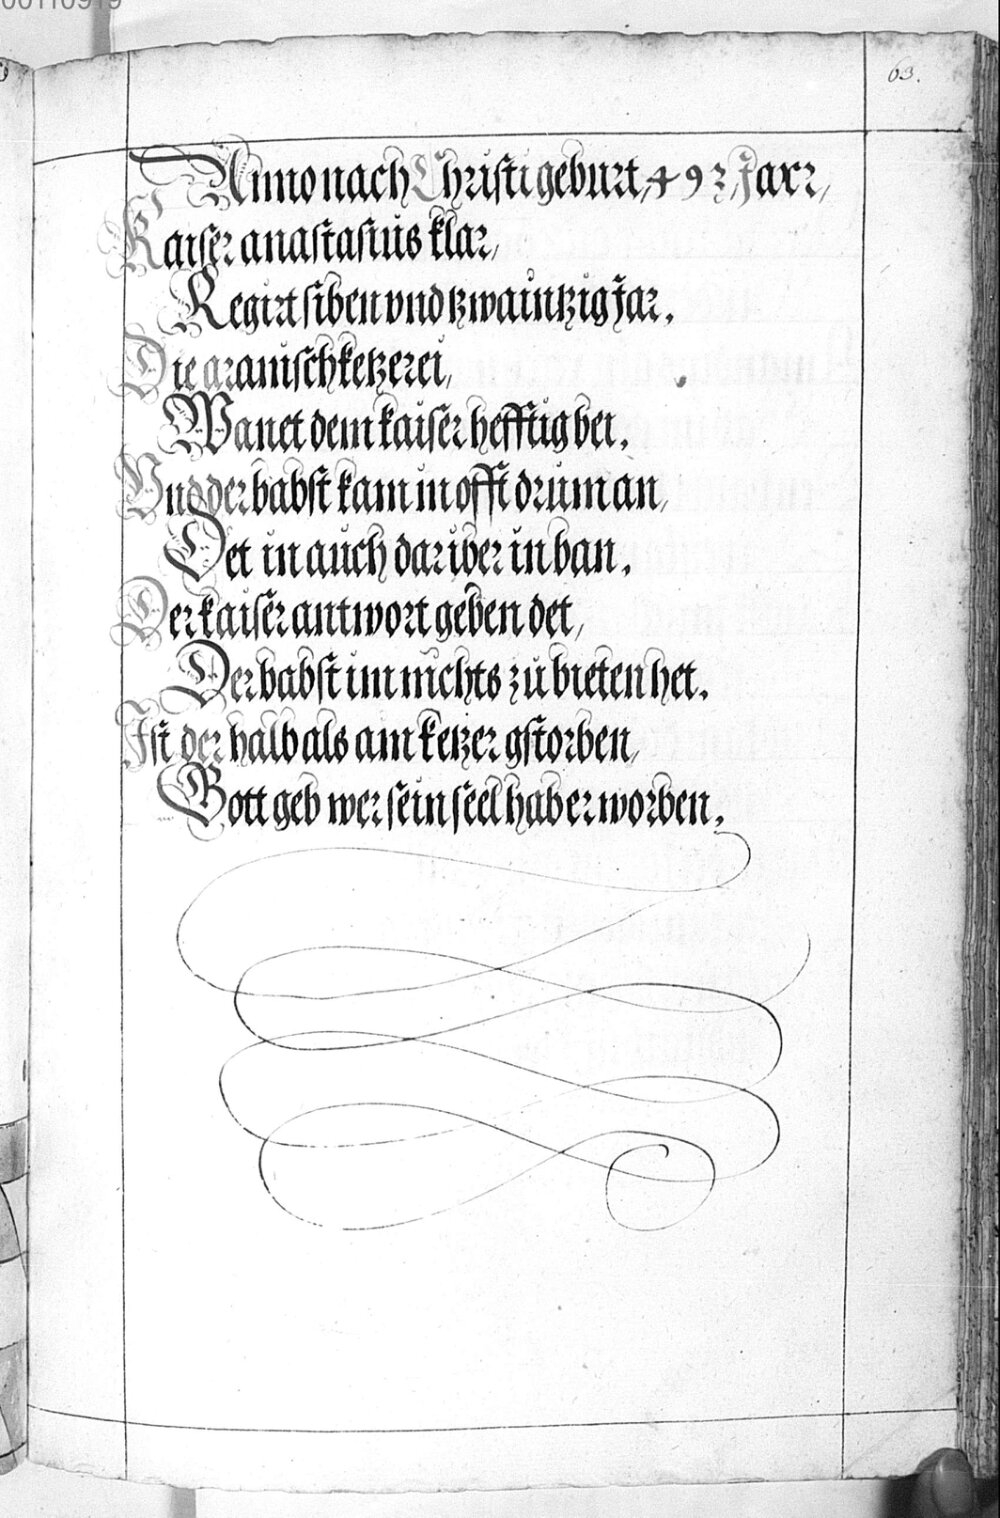 63.
Anno nach Christi geburt, 493, Jarr,
Kaiser anastasius klar,
Regirt siben vnd tzwaintzig Jar.
Die aranisch ketzerei,
Wanet dem kaiser hefftig bei.
Vnd der babst kam in offt drum an,
Det in auch dariber in ban.
Der kaiser antwort geben det,
Der babst im nichts zu bieten het.
Ist der halb als am ketzer gstorben,
Gott geb wer sein seel hab erworben.